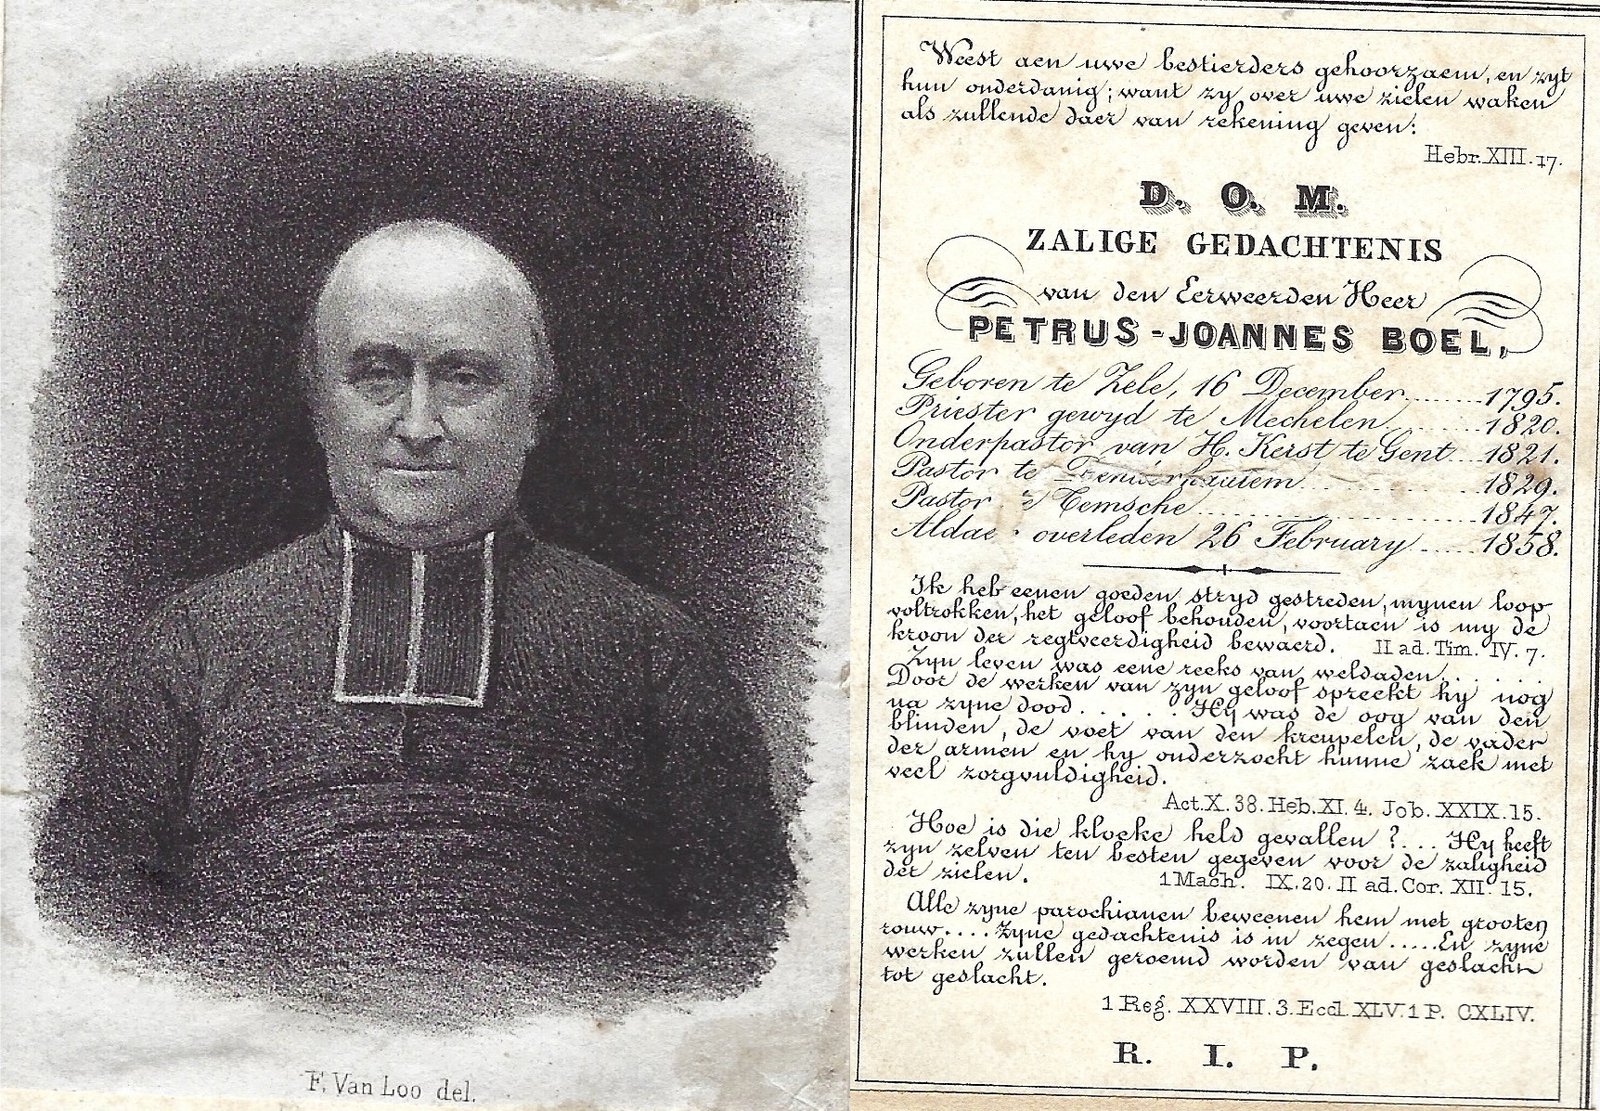 F. Van Loo del.
Weest aen uwe bestierders gehoorzaem, en zyt
hun onderdanig; want zy over uwe zielen waken
als zullende daer van rekening geven:
Hebr. XIII. 17.
D. O. M.
ZALIGE GEDACHTENIS
van den Eerweerden Heer
PETRUS-JOANNES BOEL,
Geboren te Zele, 16 December........1795.
Priester gewyd te Mechelen.........1820.
Onderpastor van H. Kerst te Gent...1821.
Pastor te ...............1829.
Pastor Temsche......................1847.
Aldae overleden 26 February.....1858.
Ik heb eenen goeden stryd gestreden, mynen loop
voltrokken, het geloof behouden, voortaen is my de
kroon der regtveerdigheid bewaerd. II ad. Tim. IV. 7.
Zyn leven was eene reeks van weldaden......
Door de werken van zyn geloof spreekt hy nog
na zyne dood...... Hy was de oog van den
blinden, de voet van den kreupelen, de vader
der armen en hy onderzocht hunne zaek met
veel zorgvuldigheid.
Act. X. 38. Heb. XI. 4. Job. XXIX. 15.
Hoe is die kloeke held gevallen?... Hy heeft
zyn zelven ten besten gegeven voor de zaligheid
der zielen. 1 Mach. IX. 20. II ad. Cor. XII. 15.
Alle zyne parochianen beweenen hem met grooten
rouw.... Zyne gedachtenis is in zegen..... En zyne
werken zullen geroemd worden van geslacht
tot geslacht.
1 Reg. XXVIII. 3. Eccl. XLV. 1 P. CXLIV.
R. I. P.